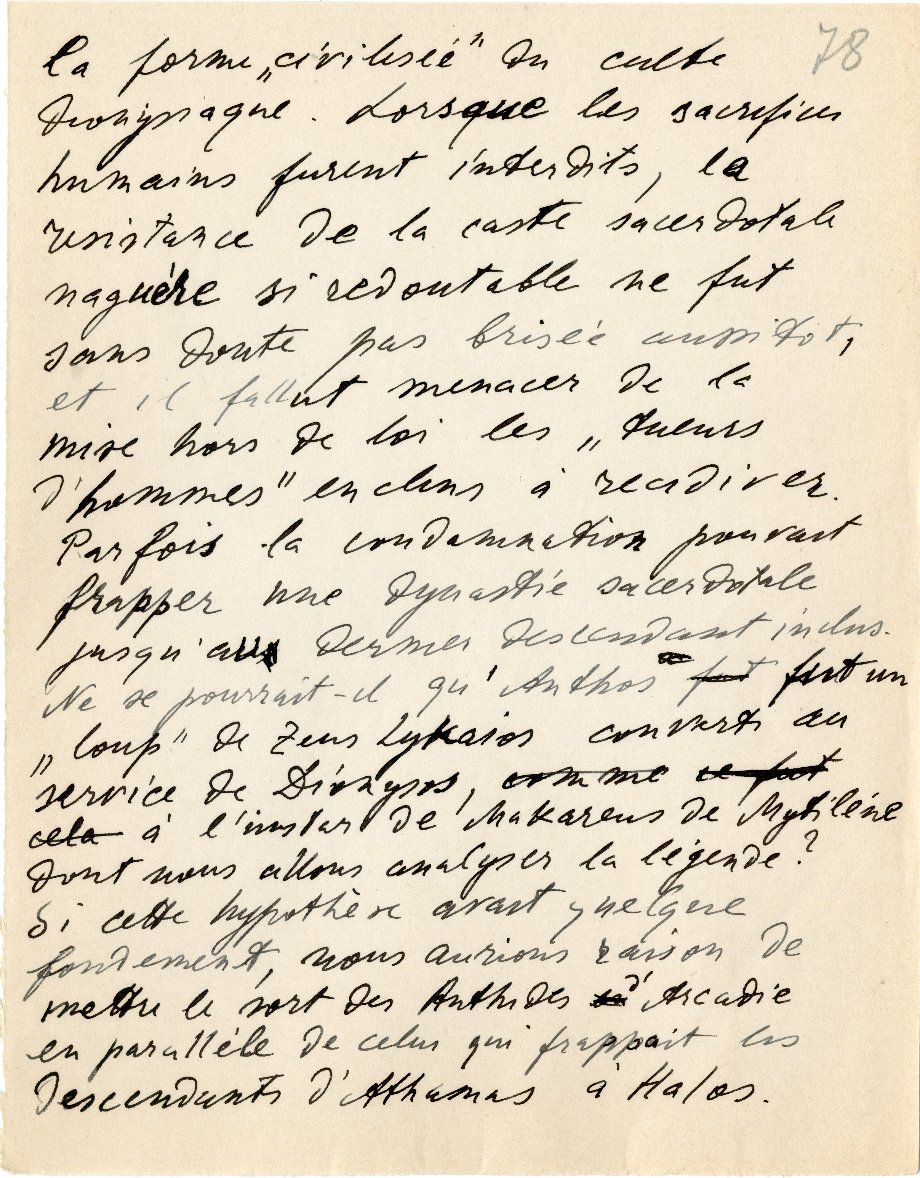 78
la forme „civilisée" du culte
dionysiaque. Lorsque les sacrifices
humains furent interdits, la
resistance de la caste sacerdotale
naguère si redoutable ne fut
sans doute pas brisée aussitôt,
et il fallut menacer de la
mise hors de loi les „tueurs
d'hommes" enclins à recidiver.
Parfois la condamnation pouvait
frapper une dynastie sacerdotale
jusqu'au dernier descendant inclus.
Ne se pourrait-il qu'Anthos fut fut un
„loup" de Zeus Lykaios converti au
service de Dionysos, comme ce fut
cela à l'instar de Makareus de Mytilène
dont nous allons analyser la légende?
Si cette hypothèse avait quelque
fondement, nous aurions raison de
mettre le sort des Anthides d'Arcadie
en parallèle de celui qui frappait les
descendants d'Athamas à Halos.